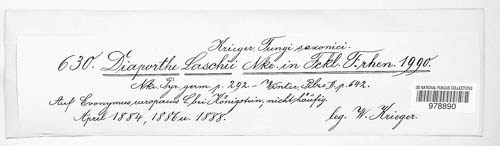 Krieger, Fungi saxonici.
630. Diaporthe Laschii Nke. in Fckl. F. rhen. 1990.
Nke. Pyr. germ. p. 292. – Winter, Pilze II, p. 642.
Auf Evonymus europaeus L. bei Königstein, nicht häufig.
April 1884, 1886 u. 1888. leg. W. Krieger.
US NATIONAL FUNGUS COLLECTIONS
978890